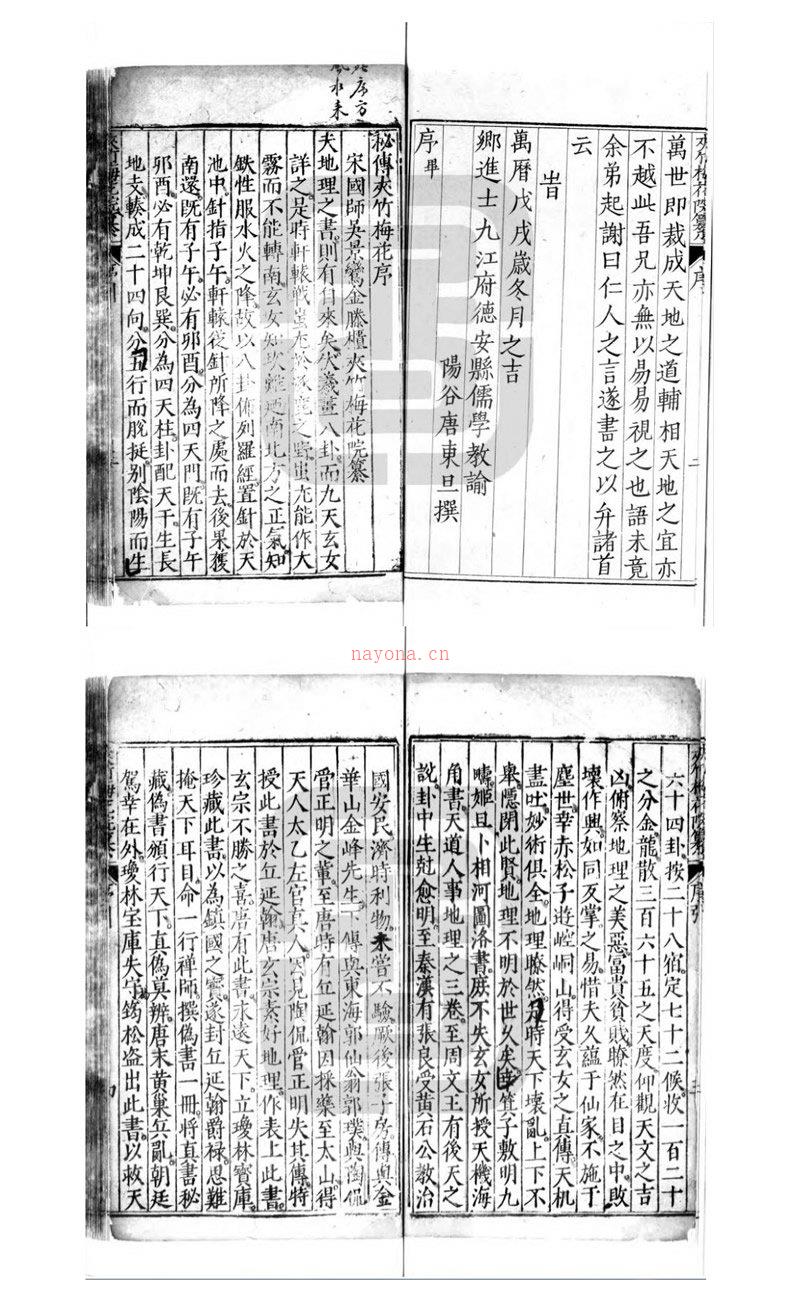 萬世即裁成天地之道輔相天地之宜亦
不越此吾兄亦無以易易視之也語未竟
余弟起謝曰仁人之言遂書之以弁諸首
云
旹
萬曆戊戌嵗冬月之吉
鄉進士九江府德安縣儒學教諭
陽谷唐東旦撰
序畢
秘傳夾竹梅花序
宋國師吳景鸞金縢櫃夾竹梅花院纂
夫地理之書則有自來矣伏羲畫八卦而九天玄女
詳之是時軒轅戰蚩尤於涿鹿之野蚩尤能作大
霧而不能轉南玄女知坎離迺南北方之正氣知
鉄性服水火之降故以八卦俻列羅經置針於天
池中針指子午軒轅從針所降之處而去後果獲
南還既有子午必有邜酉分為四天門既有子午
邜酉必有乾坤艮巽分為四天柱卦配天干生長
地支輳成二十四向分五行而脫挺別陰陽而生
六十四卦按二十八宿定七十二候收一百二十
之分金龍散三百六十五之天度仰觀天文之吉
凶俯察地理之美惡富貴貧賎瞭然在目之中敗
壞作興如同反掌之易惜夫久蘊于仙家不施于
塵世幸赤松子遊崆峒山得受玄女之直傳天机
盡吐妙術俱全地理瞭然是時天下壞亂上下不
舉隱閉此賢地理不明於世久矣幸箕子敷明九
疇姬旦卜相河圖洛書庶不失玄女所授天機海
角書天道人事地理之三卷至周文王有後天之
說卦中生尅愈明至秦漢有張良受黃石公教治
國安民濟時利物未嘗不驗厥後張子房傳與金
華山金峰先生下傳與東海郭仙翁郭璞與陶侃
管正明之董至唐時有丘延翰因採藥至太山得
天人太乙左官真人因見陶侃管正明失其傳特
授此書於丘延翰唐玄宗素好地理作表上此書
玄宗不勝之喜唐有此書永遠天下立瓊林寶庫
珍藏此書以為鎮國之寶遂封丘延翰爵祿思難
掩天下耳目命一行禪師撰偽書一冊將真書秘
藏偽書頒行天下真偽莫辨唐末黃巢兵亂朝廷
駕幸在外瓊林宝庫失守筠松盗出此書以救天
nayona.cn